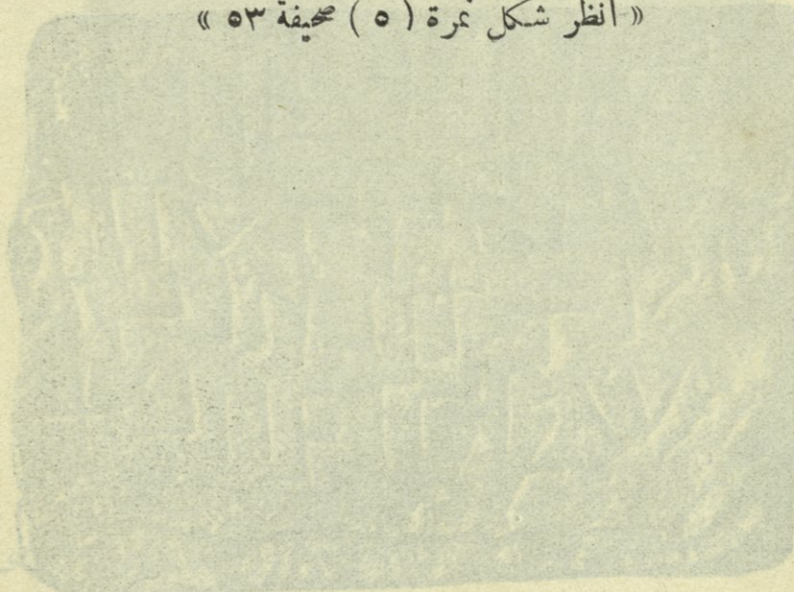 « انظر شكل نمرة ( ٥ ) صحيفة ٥٣ »